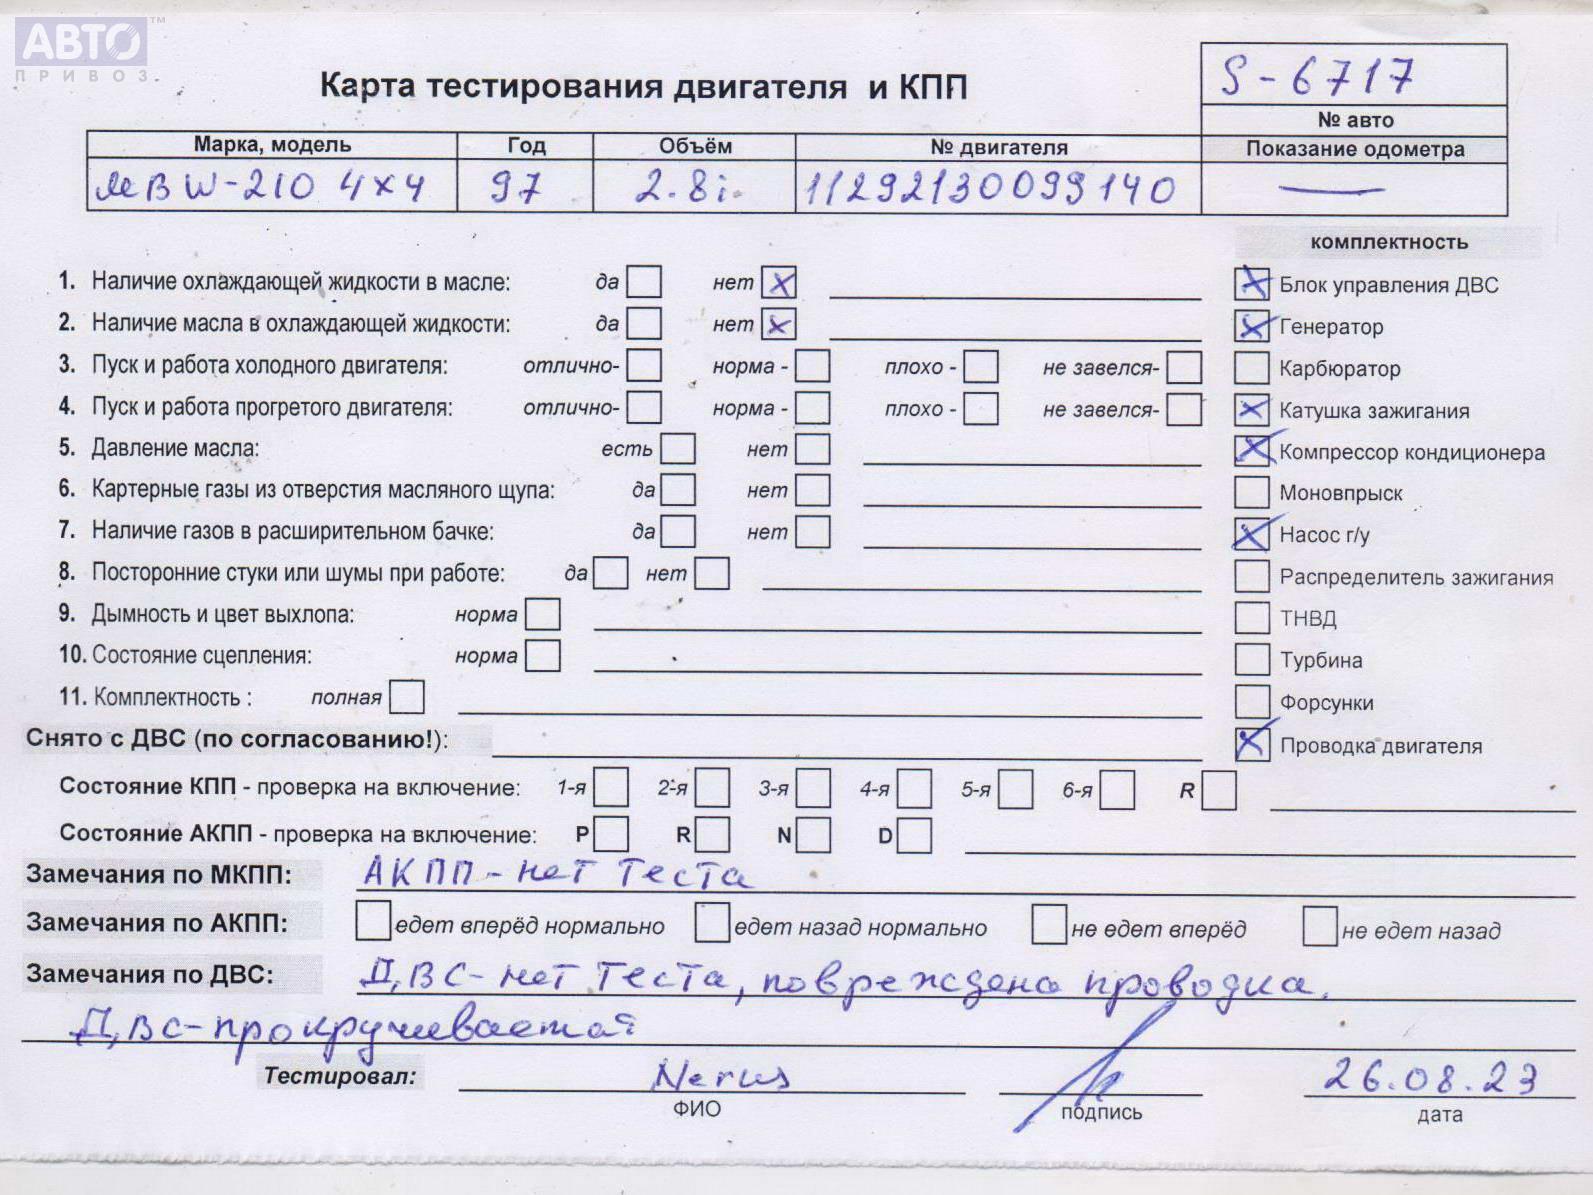 АВТО™
ПРИВОЗ
Карта тестирования двигателя и КПП
S-6717
№ авто
Марка, модель Год Объём № двигателя Показание одометра
МВ W-210 4x4 97 2.8i 11292130099140 —
комплектность
1. Наличие охлаждающей жидкости в масле: да нет x Блок управления ДВС
2. Наличие масла в охлаждающей жидкости: да нет x Генератор
3. Пуск и работа холодного двигателя: отлично- норма - плохо - не завелся- Карбюратор
4. Пуск и работа прогретого двигателя: отлично- норма - плохо - не завелся- Катушка зажигания
5. Давление масла: есть нет Компрессор кондиционера
6. Картерные газы из отверстия масляного щупа: да нет Моновпрыск
7. Наличие газов в расширительном бачке: да нет Насос г/у
8. Посторонние стуки или шумы при работе: да нет Распределитель зажигания
9. Дымность и цвет выхлопа: норма ТНВД
10. Состояние сцепления: норма Турбина
11. Комплектность : полная Форсунки
Снято с ДВС (по согласованию!): Проводка двигателя
Состояние КПП - проверка на включение: 1-я 2-я 3-я 4-я 5-я 6-я R
Состояние АКПП - проверка на включение: P R N D
Замечания по МКПП: АКПП - нет теста
Замечания по АКПП: едет вперёд нормально едет назад нормально не едет вперёд не едет назад
Замечания по ДВС: ДВС - нет теста, повреждена проводка.
ДВС - прокручивается
Тестировал: Nerus 26.08.23
ФИО подпись дата